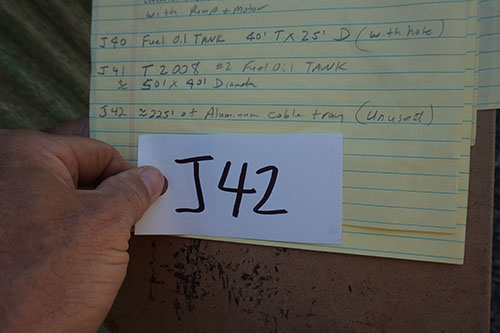 with Pump + Motor
J40 Fuel Oil TANK 40' T X 25' D (with hole)
J41 T 2008 #2 Fuel Oil TANK
≈ 50' X 40' Diameter
J42 ≈ 225' of Aluminum cable tray (Unused)
J42